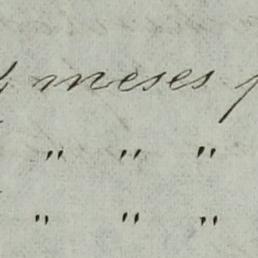 meses
" " "
" " "